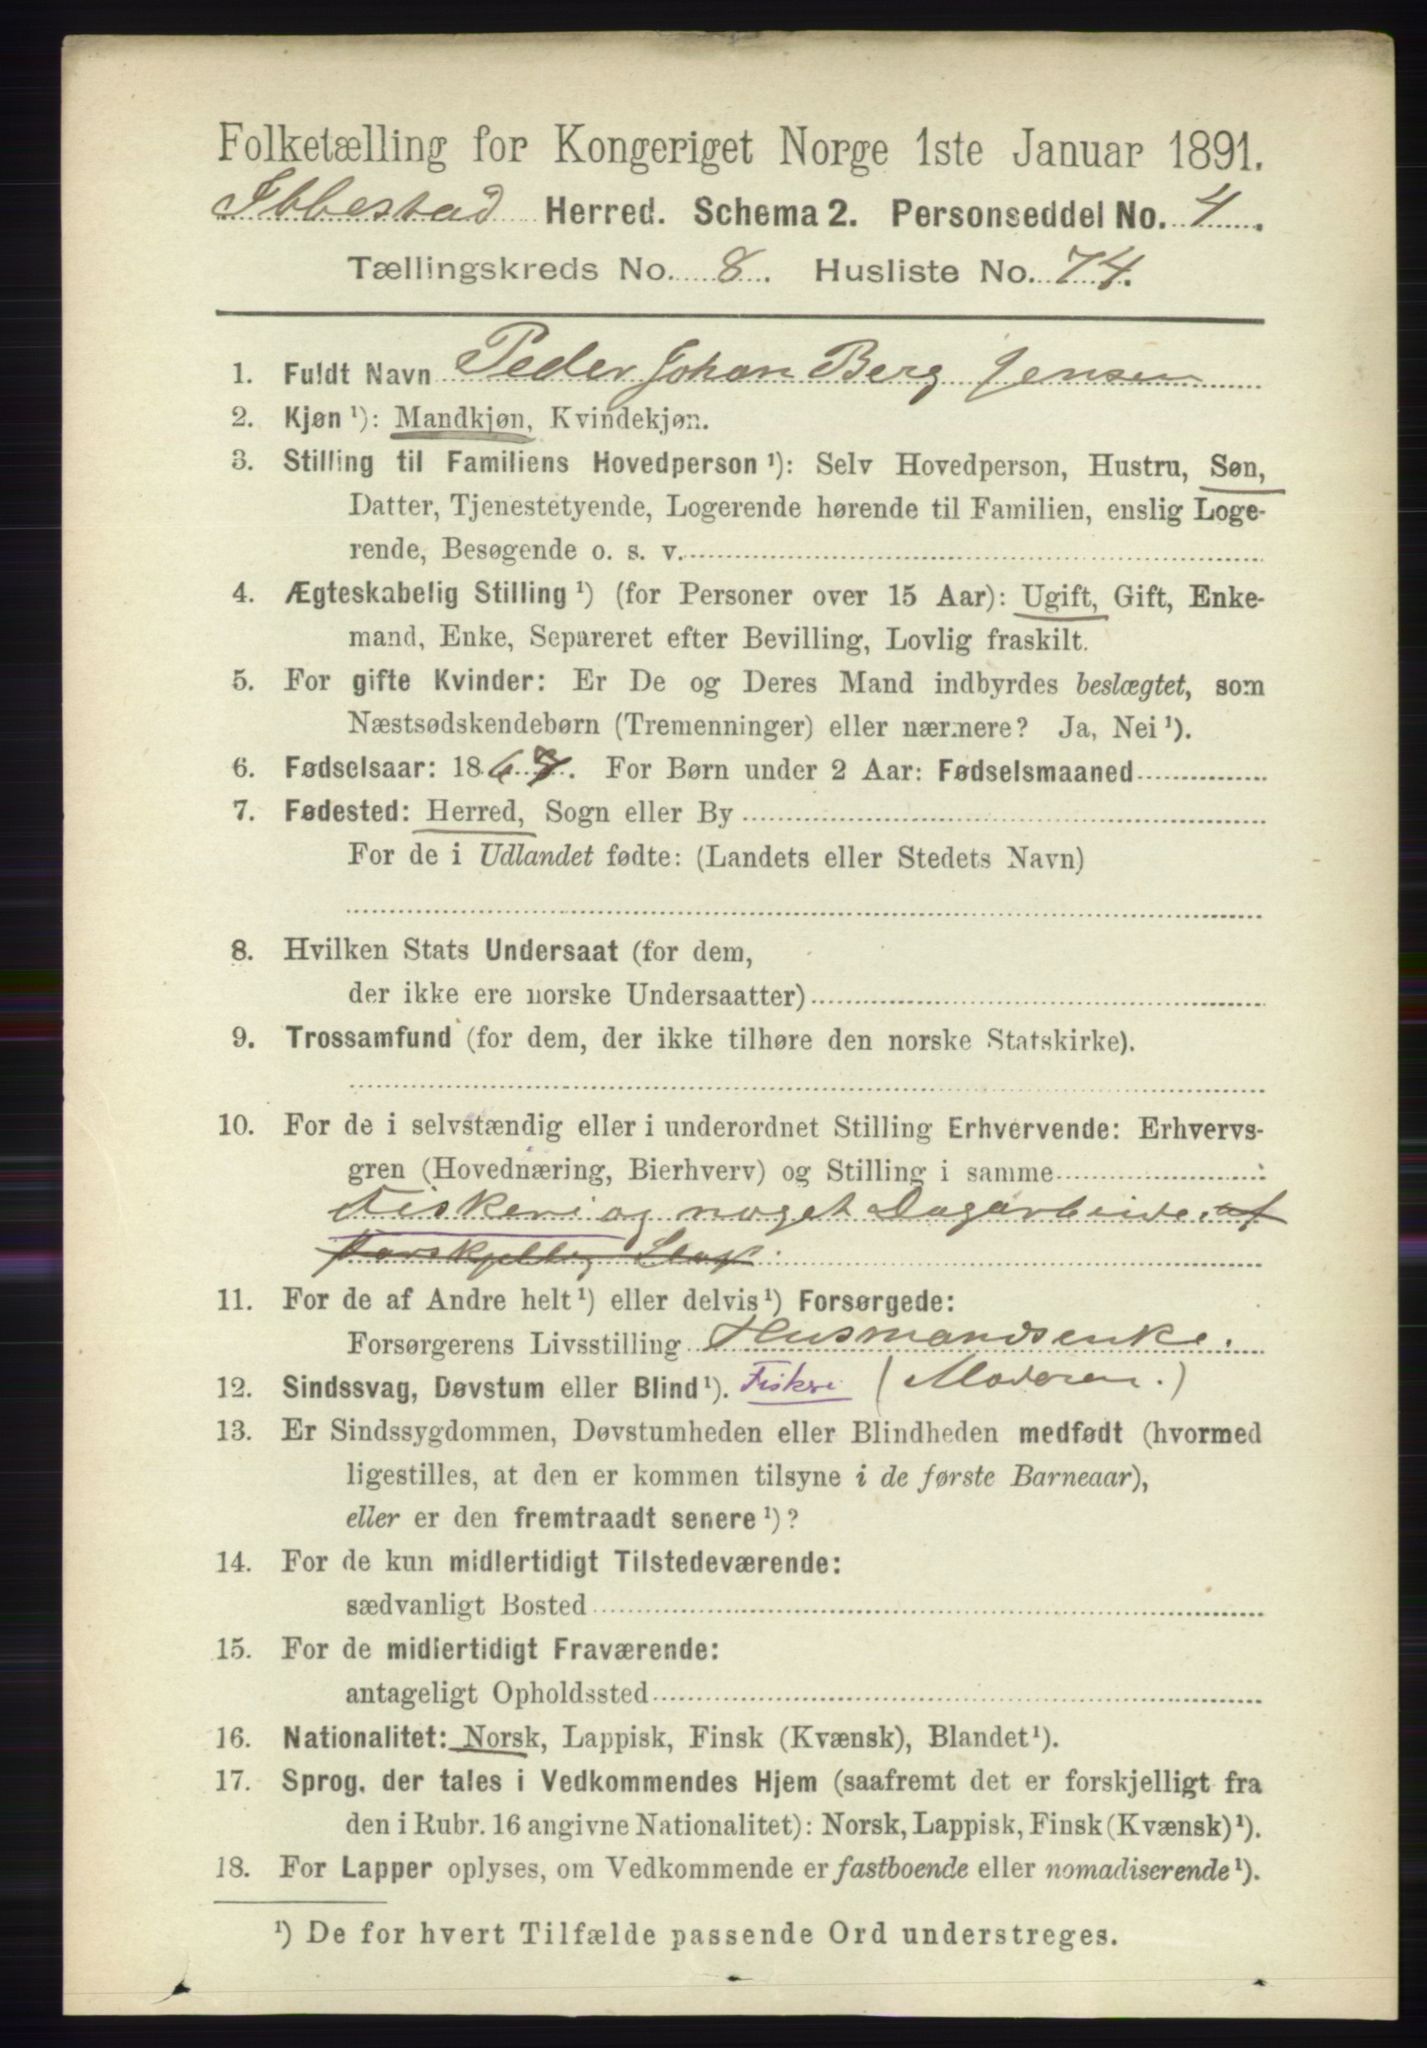 Folketælling for Kongeriget Norge 1ste Januar 1891.
Ibbestad Herred. Schema 2. Personseddel No. 4.
Tællingskreds No. 8. Husliste No. 74.
1. Fuldt Navn Peder Johan Berg Jensen
2. Kjøn ¹): Mandkjøn, Kvindekjøn.
3. Stilling til Familiens Hovedperson ¹): Selv Hovedperson, Hustru, Søn,
Datter, Tjenestetyende, Logerende hørende til Familien, enslig Loge-
rende, Besøgende o. s. v.
4. Ægteskabelig Stilling ¹) (for Personer over 15 Aar): Ugift, Gift, Enke-
mand, Enke, Separeret efter Bevilling, Lovlig fraskilt.
5. For gifte Kvinder: Er De og Deres Mand indbyrdes beslægtet, som
Næstsødskendebørn (Tremenninger) eller nærmere? Ja, Nei ¹).
6. Fødselsaar: 1867. For Børn under 2 Aar: Fødselsmaaned
7. Fødested: Herred, Sogn eller By
For de i Udlandet fødte: (Landets eller Stedets Navn)
8. Hvilken Stats Undersaat (for dem,
der ikke ere norske Undersaatter)
9. Trossamfund (for dem, der ikke tilhøre den norske Statskirke).
10. For de i selvstændig eller i underordnet Stilling Erhvervende: Erhvervs-
gren (Hovednæring, Bierhverv) og Stilling i samme
Fiskeri og noget Dagarbeide, af
forskjellig Slags.
11. For de af Andre helt ¹) eller delvis ¹) Forsørgede:
Forsørgerens Livsstilling Husmandsenke.
12. Sindssvag, Døvstum eller Blind ¹). Fiskeri (Moderen.)
13. Er Sindssygdommen, Døvstumheden eller Blindheden medfødt (hvormed
ligestilles, at den er kommen tilsyne i de første Barneaar),
eller er den fremtraadt senere ¹)?
14. For de kun midlertidigt Tilstedeværende:
sædvanligt Bosted
15. For de midlertidigt Fraværende:
antageligt Opholdssted
16. Nationalitet: Norsk, Lappisk, Finsk (Kvænsk), Blandet ¹).
17. Sprog, der tales i Vedkommendes Hjem (saafremt det er forskjelligt fra
den i Rubr. 16 angivne Nationalitet): Norsk, Lappisk, Finsk (Kvænsk) ¹).
18. For Lapper oplyses, om Vedkommende er fastboende eller nomadiserende ¹).
¹) De for hvert Tilfælde passende Ord understreges.